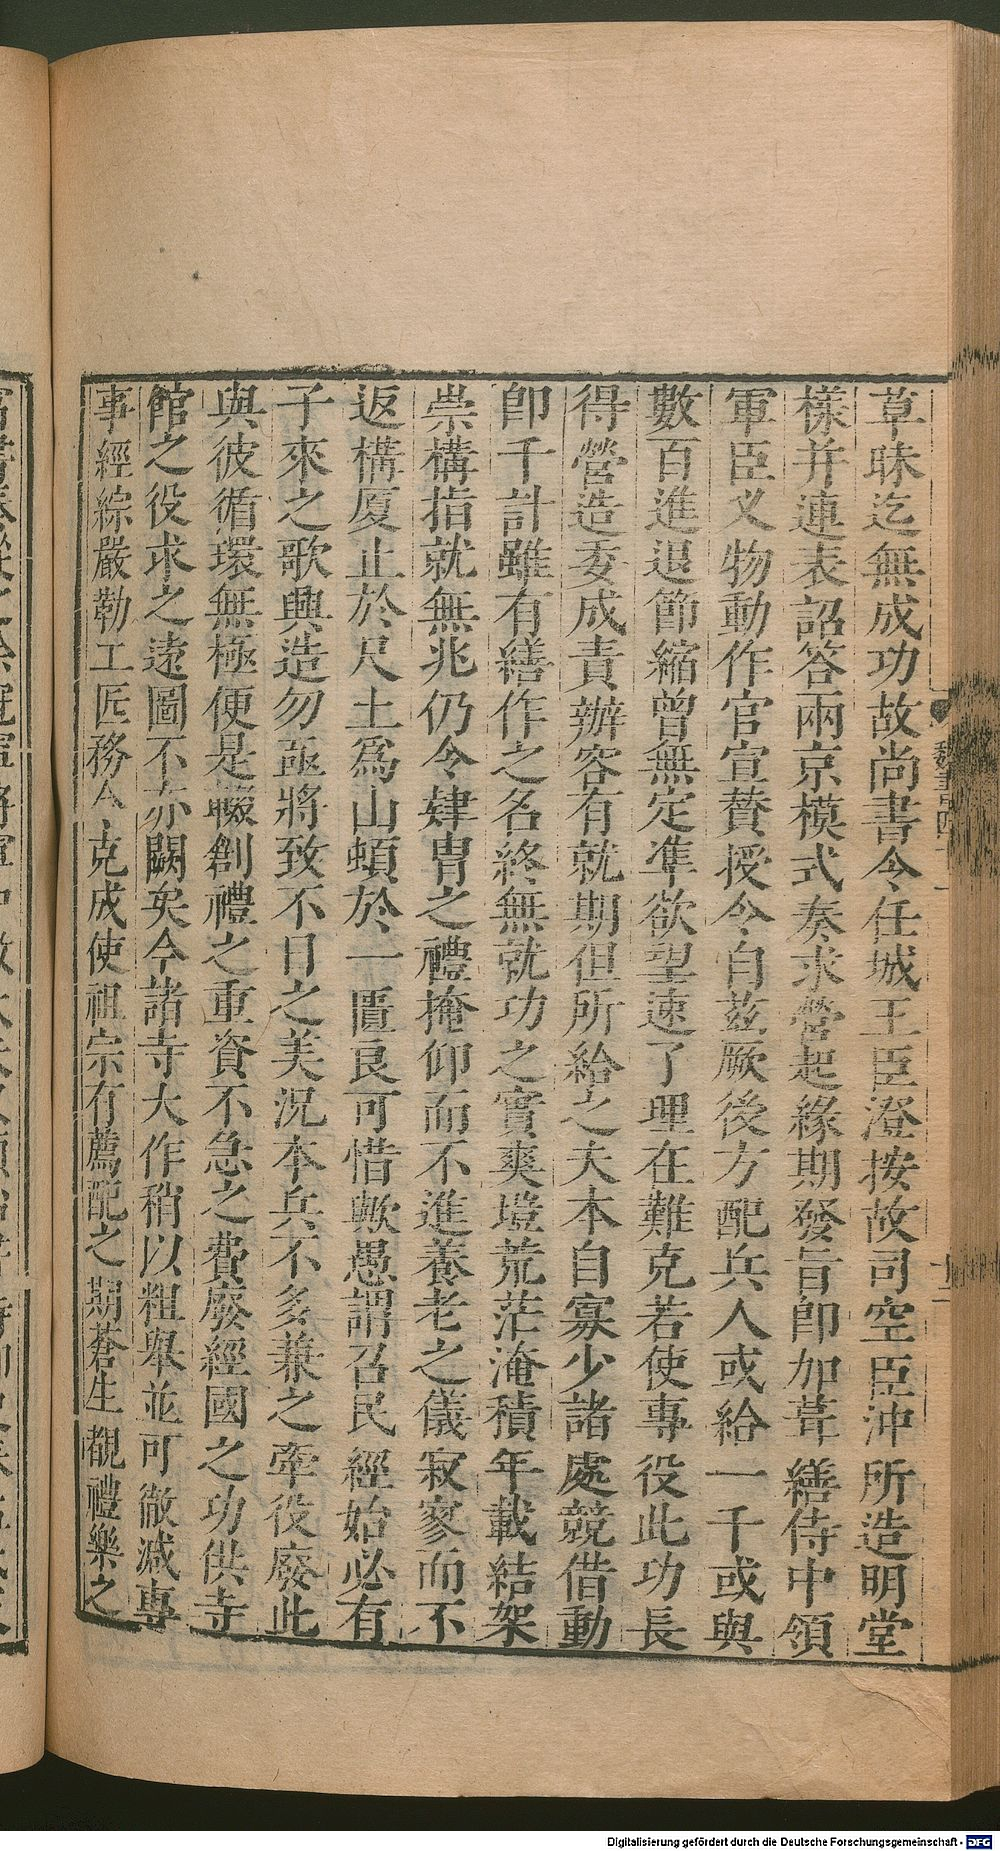 草昧迄無成功故尚書令任城王臣澄按故司空臣沖所造明堂
樣并連表詔答兩京模式奏求營起緣期發旨卽加葺繕侍中領
軍臣乂物動作官宣贊授令自茲厥後方配兵人或給一千或與
數百進退節縮曾無定準欲望速了理在難克若使專役此功長
得營造委成責辦容有就期但所給之夫本自寡少諸處競借動
卽千計雖有繕作之名終無就功之實爽塏荒茫淹積年載結架
崇構指就無兆仍令肄胄之禮掩仰而不進養老之儀寂寥而不
返構厦止於尺土爲山頓於一匱良可惜歟愚謂召民經始必有
子來之歌興造勿亟將致不日之美況本兵不多兼之牽役廢此
與彼循環無極便是輟創禮之重資不急之費廢經國之功供寺
館之役求之遠圖不亦闕矣今諸寺大作稍以粗舉並可徹減專
事經綜嚴勒工匠務令克成使祖宗有薦配之期蒼生覩禮樂之
魏書四十一
Digitalisierung gefördert durch die Deutsche Forschungsgemeinschaft - DFG